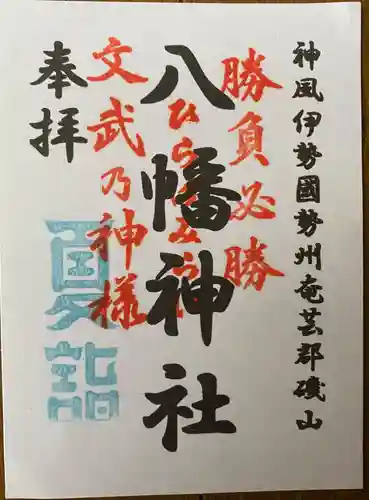 神風伊勢國勢州奄芸郡磯山
勝負必勝
八幡神社
文武乃神様
奉拝
夏詣